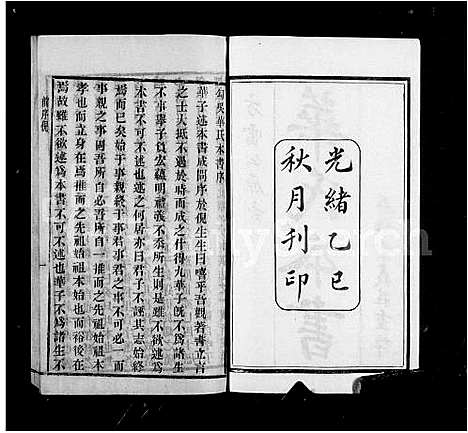 光緒乙巳
秋月刊印
勾吳華氏本書序
華子述本書成問序於倪生生曰嘻乎吾觀著書立言
之士大抵不遇於時而成之什得九華子既不爲諸生
不事舉子負宏蘊明禮義不忝所生則是雖不欲述爲
本書不可不述也述之何居亦曰君子不誣其志始祖
而已矣始于事親終于事君事君之事不可必而
事親之事間吾所自必吾所自一推而之始祖本
孝也而立身在爲推而之先祖始祖本始而
焉故雖不欲述爲本書不可不述也華子不爲諸生不
前序倪
一